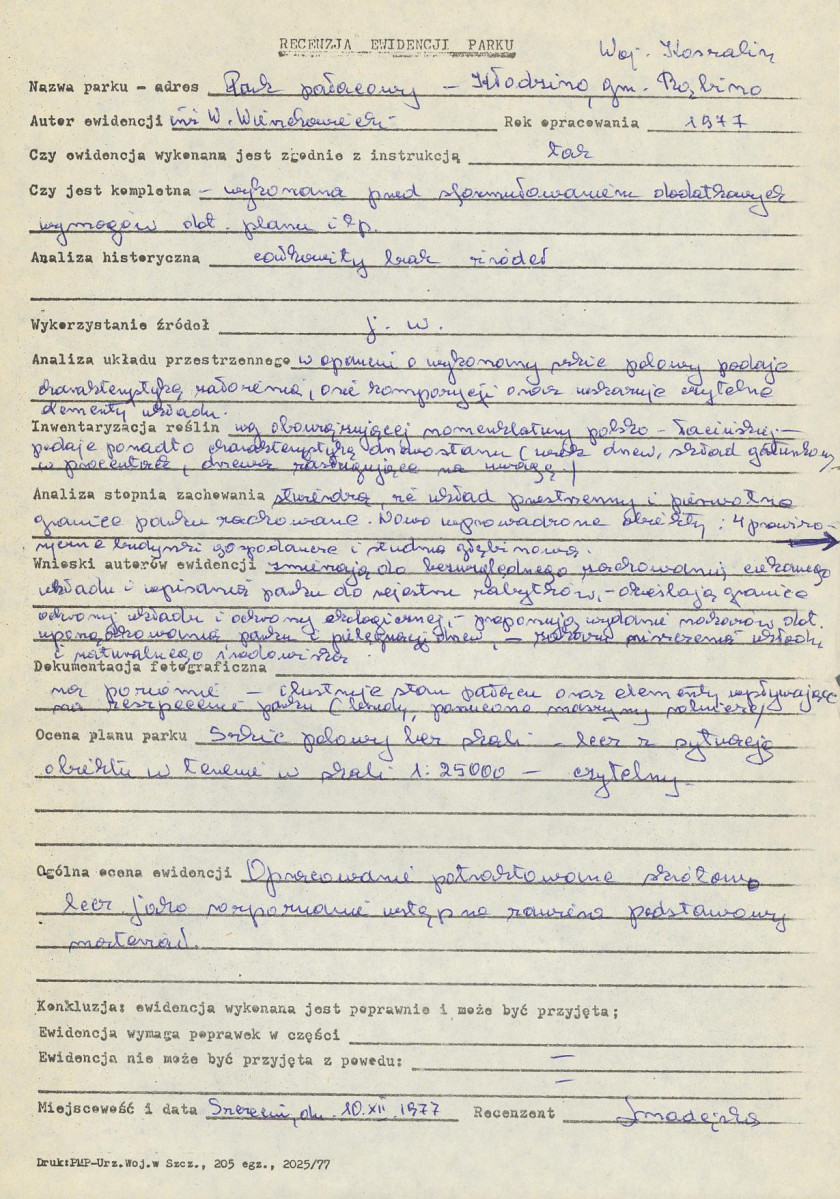 RECENZJA EWIDENCJI PARKU
Woj. Koszalin
Nazwa parku - adres Park pałacowy - Kłodzino, gm. Rąbino
Autor ewidencji inż W. Wieńckowiecki Rok opracowania 1977
Czy ewidencja wykonana jest zgodnie z instrukcją tak
Czy jest kompletna - wykonana przed sformułowaniem dodatkowych
wymogów dot. planu itp.
Analiza historyczna całkowity brak źródeł
Wykorzystanie źródeł j. w.
Analiza układu przestrzennego w oparciu o wykonany szkic polowy podaje
charakterystykę założenia, osie kompozycji oraz wskazuje czytelne
elementy układu.
Inwentaryzacja roślin wg obowiązującej nomenklatury polsko - łacińskiej -
podaje ponadto charakterystykę drzewostanu (wiek drzew, skład gatunkowy
w procentach, drzewa zasługujące na uwagę)
Analiza stopnia zachowania stwierdza, że układ przestrzenny i pierwotne
granice parku zachowane. Nowo wprowadzone obiekty: 4 prowizo-
ryczne budynki gospodarcze i studnia głębinowa.
Wnioski autorów ewidencji zmierzają do bezwzględnego zachowania ciekawego
układu i wpisania parku do rejestru zabytków, - określają granice
ochrony układu i ochrony ekologicznej, - proponują wydanie nakazów dot.
uporządkowania parku i pielęgnacji drzew, - zakazu niszczenia układu
i naturalnego środowiska.
Dokumentacja fotograficzna
na poziomie - ilustruje stan pałacu oraz elementy wpływające
na zeszpecenie parku (brudy, porzucone maszyny rolnicze)
Ocena planu parku Szkic polowy bez skali - lecz z sytuacją
obiektu w terenie w skali 1:25000 - czytelny
Ogólna ocena ewidencji Opracowanie potraktowane skrótowo
lecz jako rozpoznanie wstępne zawiera podstawowy
materiał.
Konkluzja: ewidencja wykonana jest poprawnie i może być przyjęta;
Ewidencja wymaga poprawek w części
Ewidencja nie może być przyjęta z powodu: -
-
Miejscowość i data Szczecin, dn. 10.XII.1977 Recenzent
Druk:PMP-Urz.Woj.w Szcz., 205 egz., 2025/77